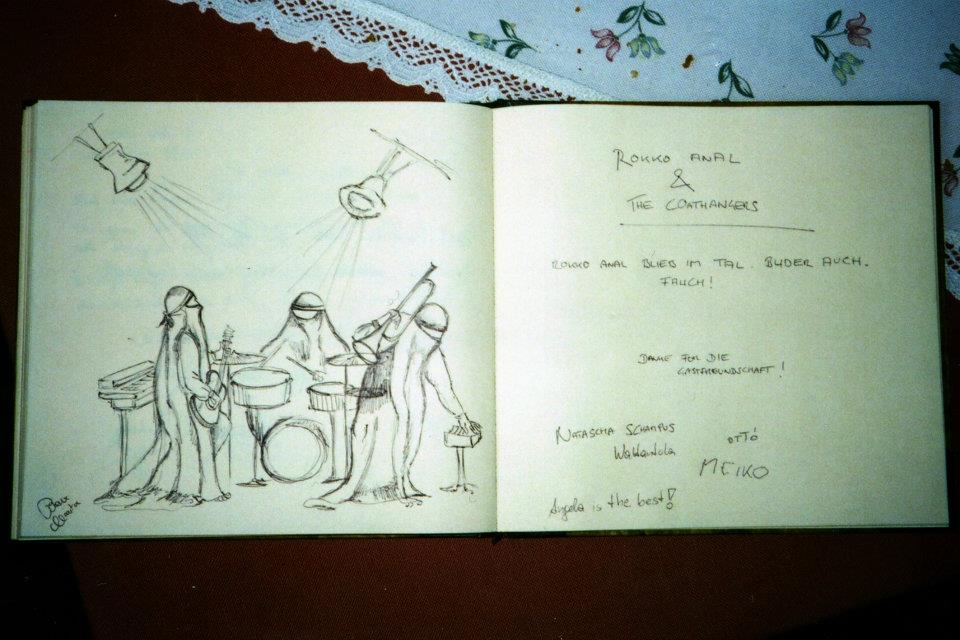 ROKKO ANAL
&
THE COATHANGERS
ROKKO ANAL BLIEB IM TAL. BUDER AUCH.
FAUCH!
DANKE FÜR DIE
GASTFREUNDSCHAFT!
NATASCHA SCHAMPUS
OTTÓ
MEIKO
Angela is the best!